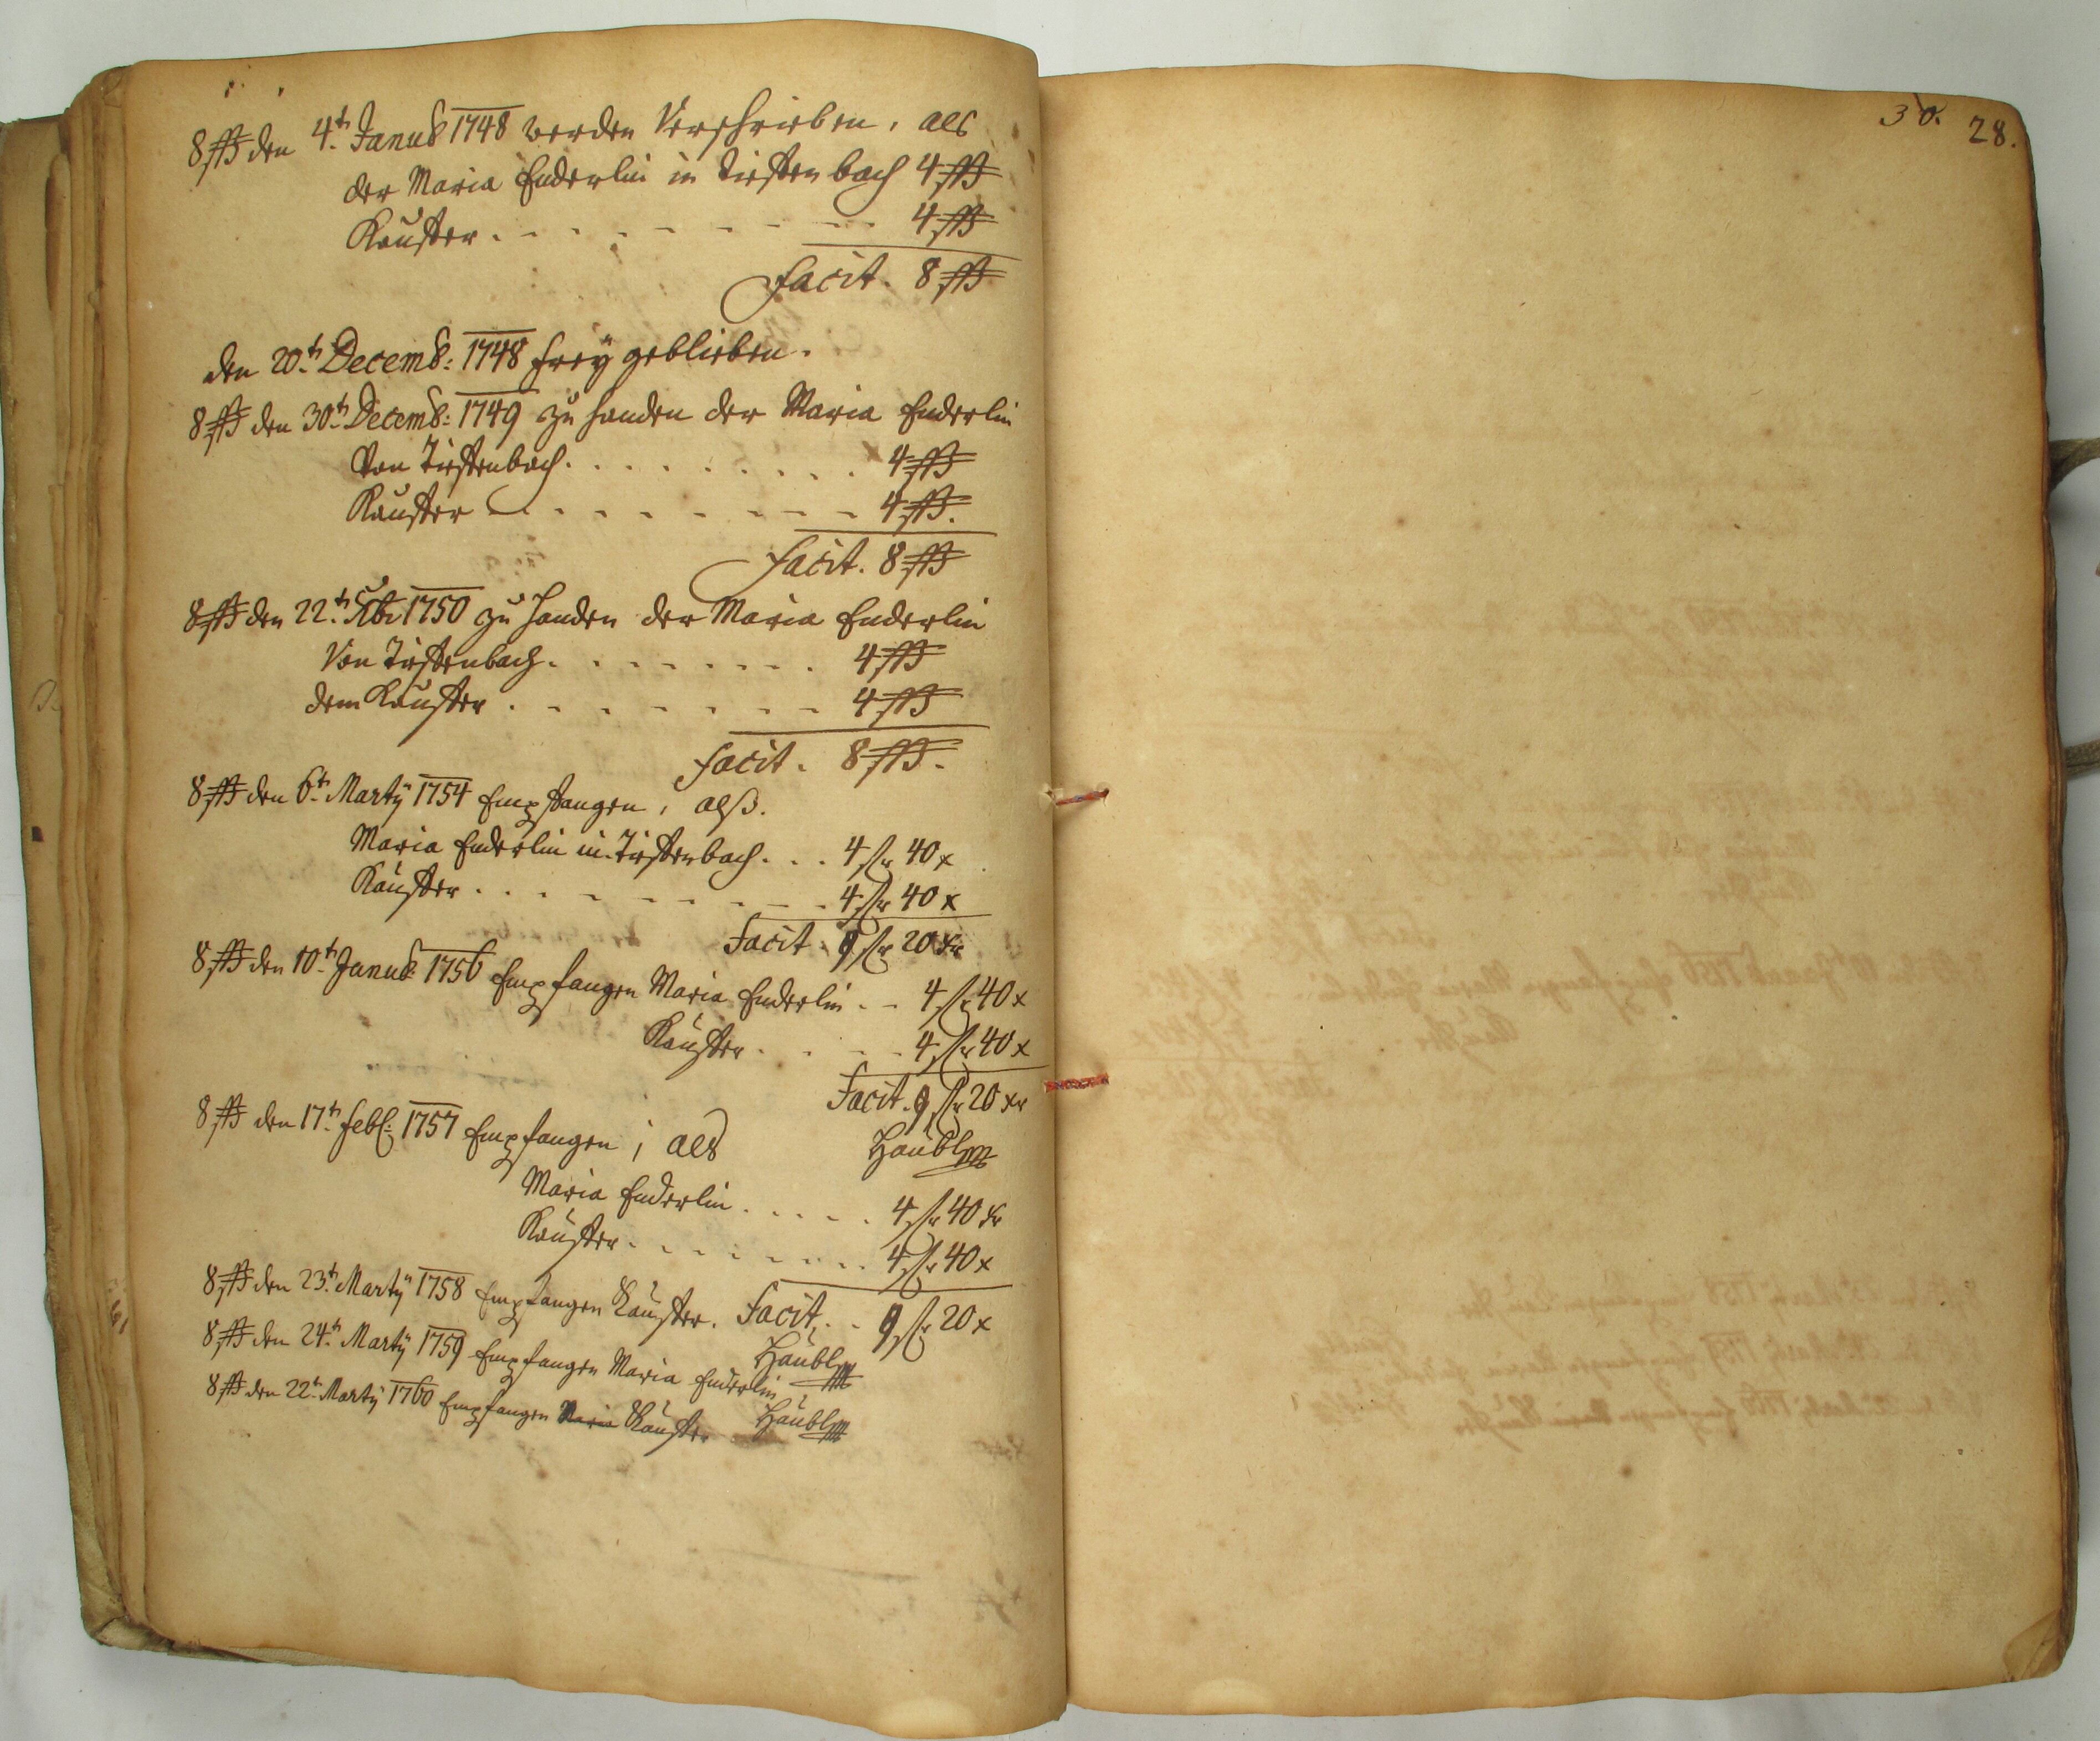 8 ℔ den 4.t Janub 1748 werden Verschrieben, als
der Maria Enderlin in Tiestenbach 4 ℔
Kauster . - - - - - - - - 4 ℔
Facit. 8 ℔
den 20.t Decemb: 1748 frey geblieben.
8 ℔ den 30.t Decemb: 1749 zu handen der Maria Enderlin
Von Tiestenbach. . . . . . . . . 4 ℔
Kauster - - - - - - - - 4 ℔.
Facit. 8 ℔
8 ℔ den 22.t 1750 zu Handen der Maria Enderlin
Von Tiestenbach. . . . . . . . 4 ℔
dem Kauster . - - - - - - - 4 ℔
Facit. 8 ℔.
8 ℔ den 6.t Martÿ 1754 Empfangen, alß.
Maria Enderlin in Tiestenbach. . . 4 fl 40 x
Kauster . . . - - - - - - 4 fl 40 x
Facit. 9 fl 20 xr
8 ℔ den 10.t Janub 1756 Empfangen Maria Enderlin . - 4 fl 40 x
Kauster . . . - - 4 fl 40 x
Facit. 9 fl 20 xr
Häubl
8 ℔ den 17.t feb: 1757 Empfangen; als
Maria Enderlin . . . . . 4 fl 40 xr
Kauster . - - - - - - . 4 fl 40 x
Facit. - 9 fl 20 x
8 ℔ den 23.t Martÿ 1758 Empfangen Kauster.
Häubl
8 ℔ den 24.t Martÿ 1759 Empfangen Maria Enderlin
Häubl
8 ℔ den 22.t Martÿ 1760 Empfangen Maria Kauster
30. 28.